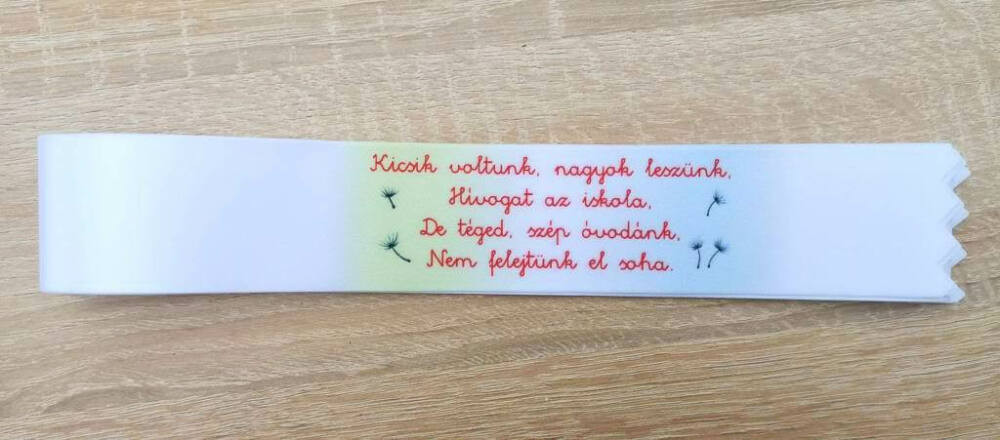 Kicsik voltunk, nagyok leszünk,
Hívogat az iskola,
De téged, szép óvodánk,
Nem felejtünk el soha.